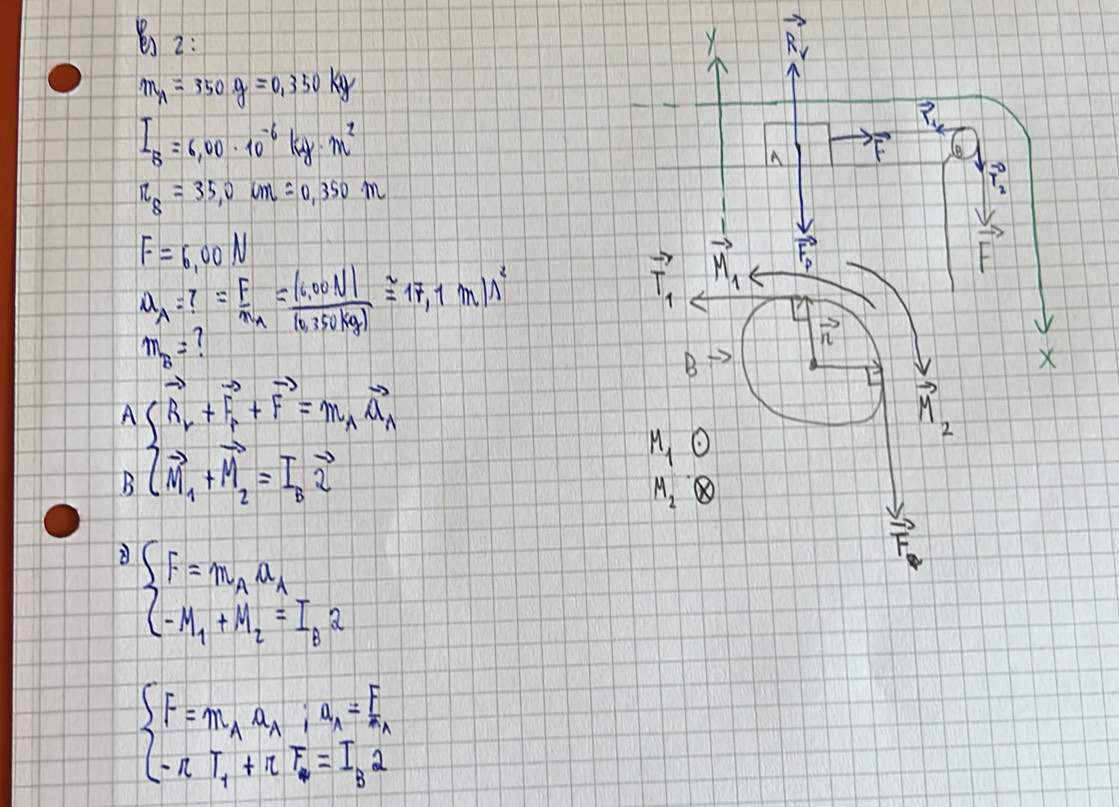 Es 2:
m_A = 350 g = 0,350 kg
I_B = 6,00 · 10^-6 kg · m²
r_B = 35,0 cm = 0,350 m
F = 6,00 N
a_A = ? = F/m_A = (6,00 N)/(0,350 kg) ≅ 17,1 m/s²
m_B = ?
A { R⃗_v + F⃗_p + F⃗ = m_A a⃗_A
B { M⃗_1 + M⃗_2 = I_B α⃗
a) { F = m_A a_A
{ -M_1 + M_2 = I_B α
{ F = m_A a_A ; a_A = F/m_A
{ -r T_1 + r F = I_B α
Y
R⃗_v
A
F⃗
T⃗_1
B
T⃗_2
F⃗_p
F⃗
X
T⃗_1
M⃗_1
r⃗
B →
M⃗_2
M_1 ⊙
M_2 ⊗
F⃗